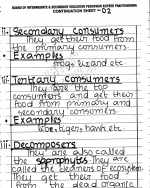 BOARD OF INTERMEDIATE & SECONDARY EDUCATION
CONTINUATION SHEET - 02
ii. Secondary Consumers
They get their food from
the primary consumers.
• Examples
Frogs, lizard etc.
ii. Tertiary Consumers
They are the top
consumers and get their
food from primary and
secondary consumers.
• Examples
Lion, tigers, hawk etc.
iii. Decomposers
They are also called
the saprophytes. They are
called the cleaners of ecosystem
They get their food
from the dead organic